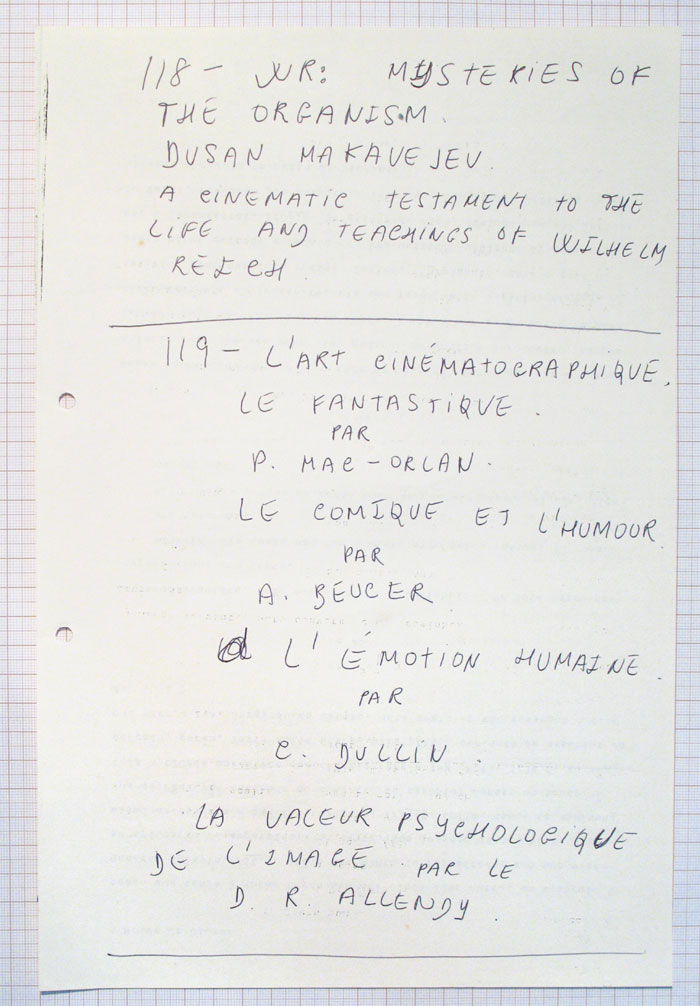 118 - WR: MYSTERIES OF
THE ORGANISM.
DUSAN MAKAVEJEV.
A CINEMATIC TESTAMENT TO THE
LIFE AND TEACHINGS OF WILHELM
REICH
119 - L'ART CINÉMATOGRAPHIQUE.
LE FANTASTIQUE.
PAR
P. MAC-ORLAN.
LE COMIQUE ET L'HUMOUR
PAR
A. BEUCLER
L'ÉMOTION HUMAINE.
PAR
C. DULLIN.
LA VALEUR PSYCHOLOGIQUE
DE L'IMAGE PAR LE
D. R. ALLENDY.